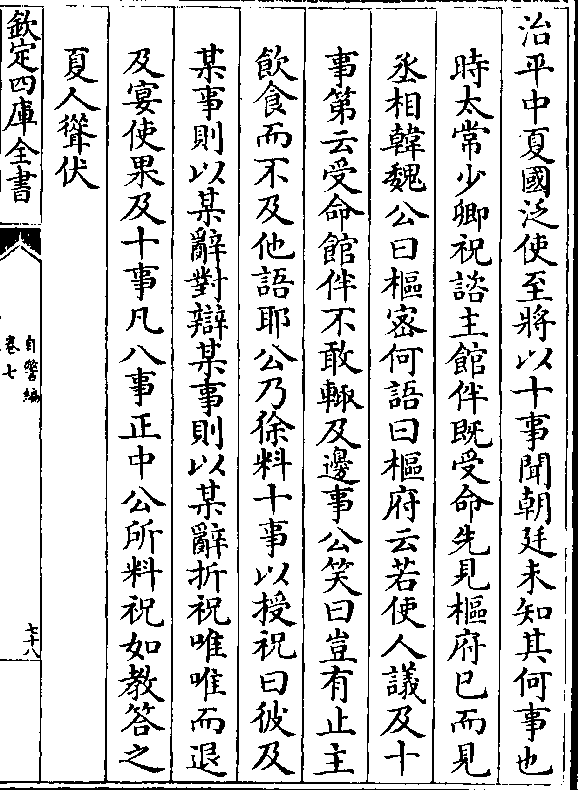 治平中夏國泛使至將以十事聞朝廷未知其何事也
時太常少卿祝諮主館伴既受命先見樞府已而見
丞相韓魏公曰樞密何語曰樞府云若使人議及十
事第云受命館伴不敢輙及邊事公笑曰豈有止主
飲食而不及他語耶公乃徐料十事以授祝曰彼及
某事則以某辭對辯某事則以某辭折祝唯唯而退
及宴使果及十事凡八事正中公所料祝如教答之
夏人聳伏
欽定四庫全書
自警編
卷七
七十八